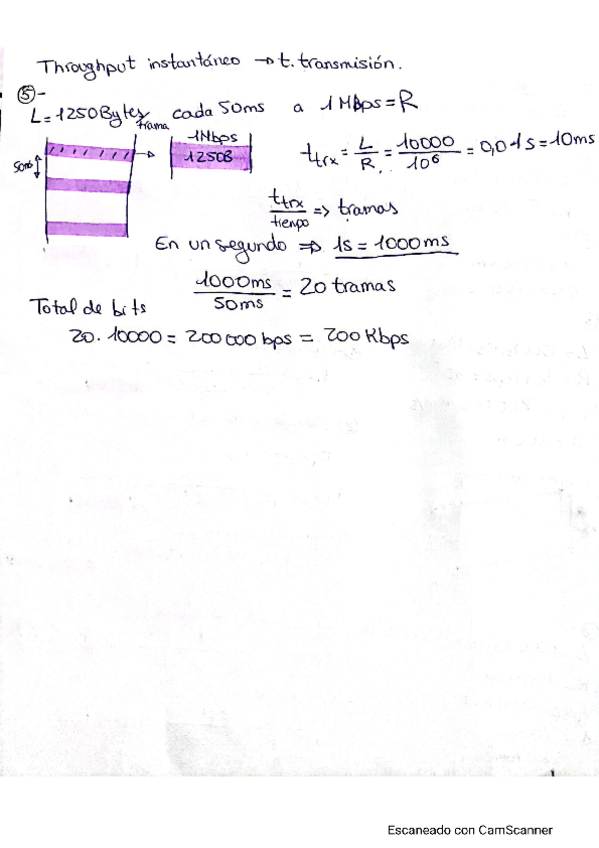 Throughput instantáneo → t. transmisión.
⑤-
L = 1250Bytes cada 50ms a 1 Mbps = R
trama
50ms
1Mbps
1250B
t_trx = L/R = 10000/10⁶ = 0,01s = 10ms
t_trx/tiempo => tramas
En un segundo ⇒ 1s = 1000ms
1000ms/50ms = 20 tramas
Total de bits
20 · 10000 = 200000 bps = 200 Kbps
Escaneado con CamScanner